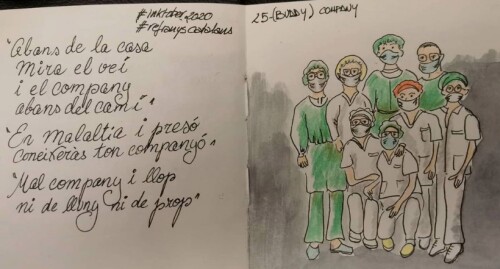 #inktober2020
#refranyscatalans
"Abans de la casa
mira el veí
i el company
abans del camí"
"En malaltia i presó
coneixeràs ton companyó"
"Mal company i llop
ni de lluny ni de prop"
25-(BUDDY) COMPANY